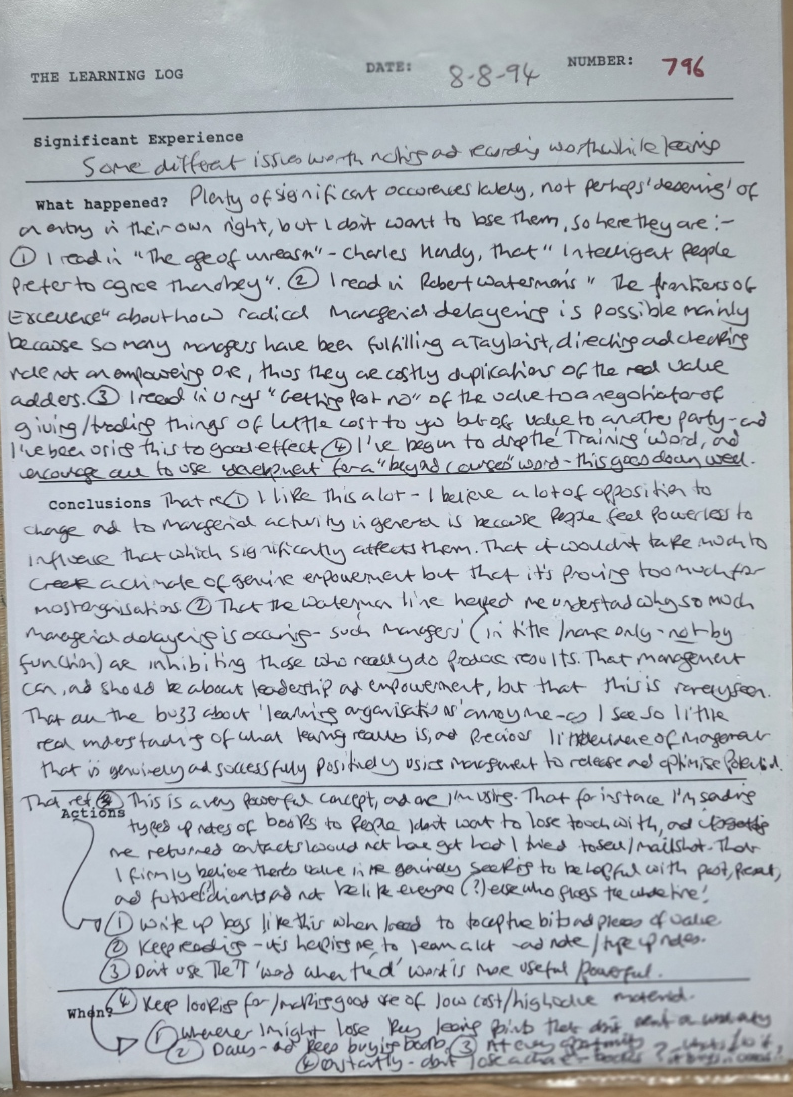 THE LEARNING LOG DATE: 8-8-94 NUMBER: 796
Significant Experience
Some different issues worth noting and recording worthwhile learning
What happened? Plenty of significant occurences lately, not perhaps 'deserving' of
an entry in their own right, but I don't want to lose them, so here they are:-
① I read in "The age of unreason" - Charles Handy, that "Intelligent people
prefer to agree than obey". ② I read in Robert Waterman's "The frontiers of
Excellence" about how radical managerial delayering is possible mainly
because so many managers have been fulfilling a Taylorist, directing and checking
role not an empowering one, thus they are costly duplications of the real value
adders. ③ I read in Urys "Getting Past no" of the value to a negotiator of
giving/trading things of little cost to you but of value to another party - and
I've been using this to good effect ④ I've begun to drop the 'Training' word, and
encourage all to use 'development' for a "beyond courses" word - this goes down well.
Conclusions That re ① I like this a lot - I believe a lot of opposition to
change and to managerial activity in general is because people feel powerless to
influence that which significantly affects them. That it wouldn't take much to
create a climate of genuine empowerment but that it's proving too much for
most organisations. ② That the Waterman line helped me understand why so much
managerial delayering is occuring - such managers (in title/name only - not by
function) are inhibiting those who really do produce results. That management
can, and should be about leadership and empowerment, but that this is rarely seen.
That all the buzz about 'learning organisations' annoy me - as I see so little
real understanding of what learning really is, and precious little evidence of managerial
that is genuinely and successfully positively using management to release and optimise potential.
That ref ③ This is a very powerful concept, and one I'm using. That for instance I'm sending
Actions typed up notes of books to people I don't want to lose touch with, and
me returned contacts I would not have got had I tried to sell/mailshot. That
I firmly believe there's value in me genuinely seeking to be helpful with past, present,
and future(?) clients and not be like everyone (?) else who plugs the whole time!
① Write up logs like this when I need to to capture bits and pieces of value
② Keep reading - it's helping me to learn a lot - and note/type up notes.
③ Don't use the 'T' word when the 'd' word is more useful/powerful.
④ Keep looking for/making good use of low cost/high value material.
When? ① Whenever I might lose key learning points that don't merit a whole entry
② Daily - and keep buying books. ③ At every opportunity
④ Constantly - don't lose a chance - books